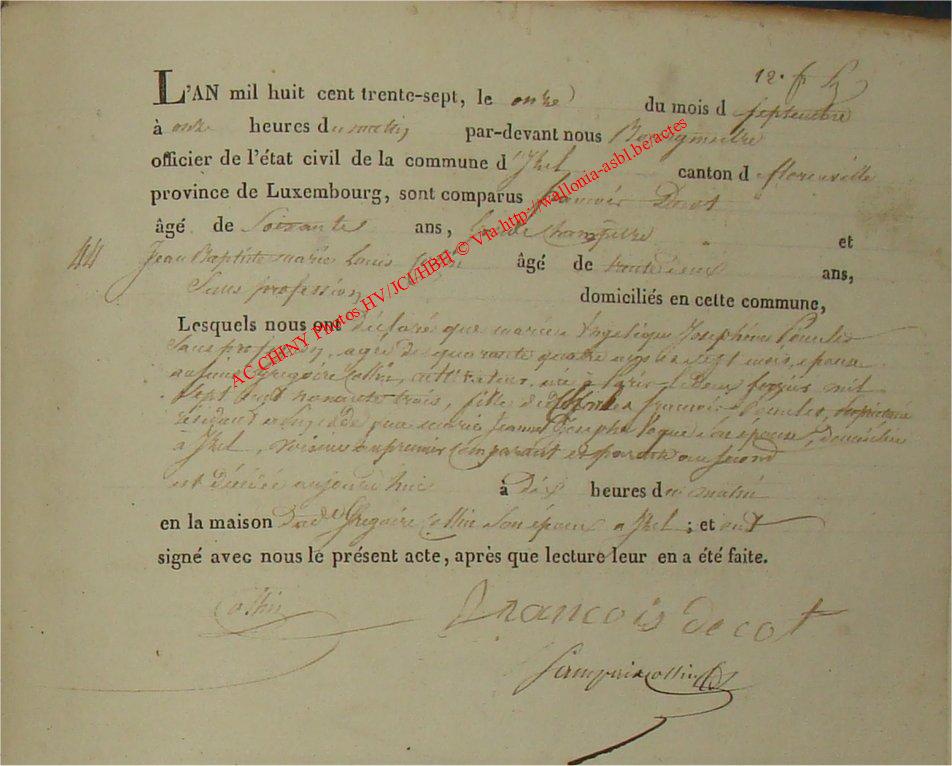 L'AN mil huit cent trente-sept, le onze du mois d septembre
à onze heures du matin par-devant nous Bourgmestre
officier de l'état civil de la commune d'Izel canton d florenville
province de Luxembourg, sont comparus françois Docot
âgé de Soixante ans, Garde Champêtre et
44 Jean Baptiste marie Louis Collin âgé de trente deux ans,
Sans profession domiciliés en cette commune,
Lesquels nous ont déclaré que marie Angelique Josephine
Sans profession, agée de quarante quatre ans et sept mois, epouse
Gregoire Collin, cultivateur, née à Paris deux
sept cent nonante trois, fille de françois
marie Jeanne Josephe son épouse, domiciliée
a Izel, voisine du premier Comparant et du Second
est décédée aujourd'hui à dix heures du matin
en la maison Dud Gregoire Collin Son époux a Izel ; et ont
signé avec nous le présent acte, après que lecture leur en a été faite.
Collin francois docot
Collin
AC CHINY Photos HV/JCI/HBH © Via http://wallonia-asbl.be/actes